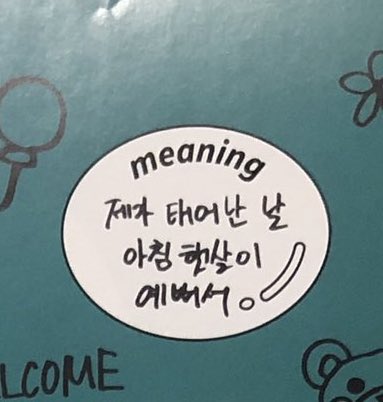 meaning
제가 태어난 날
아침 햇살이
예뻐서
LCOME